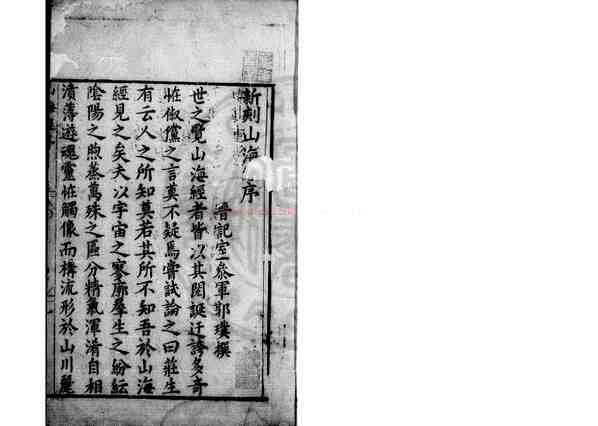 新刻山海 序
晉記室參軍郭璞撰
世之覽山海經者皆以其閎誕迂誇多奇
恠俶儻之言莫不疑焉嘗試論之曰莊生
有云人之所知莫若其所不知吾於山海
經見之矣夫以宇宙之寥廓羣生之紛紜
陰陽之煦蒸萬殊之區分精氣渾淆自相
濆薄遊魂靈恠觸像而構流形於山川麗